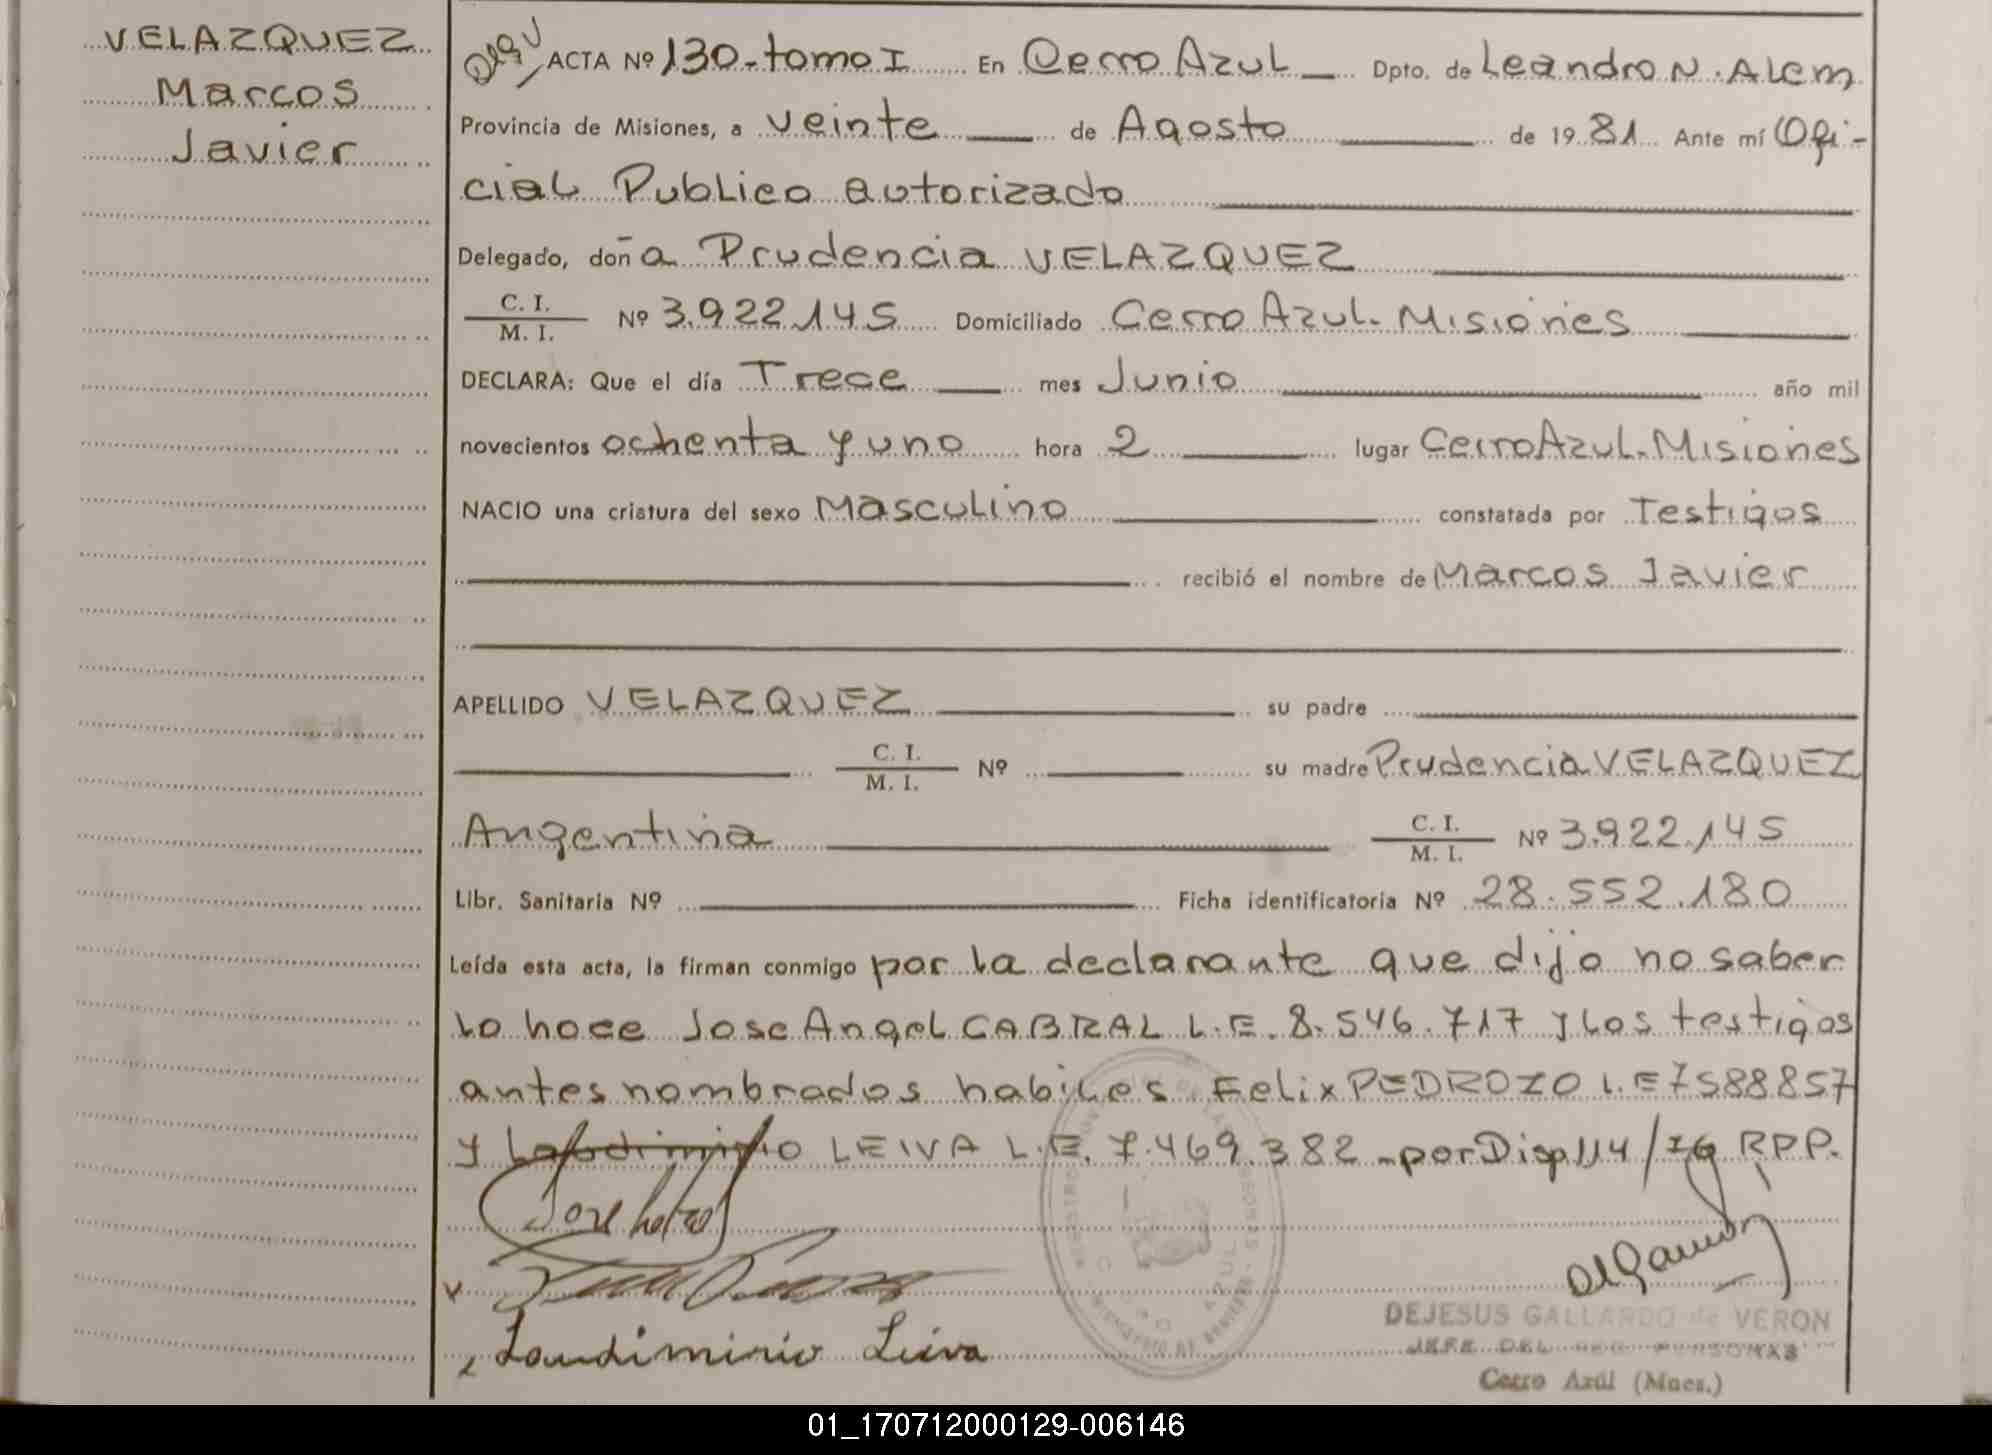 VELAZQUEZ
Marcos
Javier
ACTA Nº 130-tomo I En Cerro Azul Dpto. de Leandro N. Alem
Provincia de Misiones, a veinte de Agosto de 1981 Ante mí Ofi-
cial Publico autorizado
Delegado, doña Prudencia VELAZQUEZ
C. I. / M. I. Nº 3.922.145 Domiciliado Cerro Azul. Misiones
DECLARA: Que el día Trece mes Junio año mil
novecientos ochenta y uno hora 2 lugar Cerro Azul. Misiones
NACIO una criatura del sexo Masculino constatada por Testigos
recibió el nombre de Marcos Javier
APELLIDO VELAZQUEZ su padre
C. I. / M. I. Nº su madre Prudencia VELAZQUEZ
Argentina C. I. / M. I. Nº 3.922.145
Libr. Sanitaria Nº Ficha identificatoria Nº 28.552.180
Leída esta acta, la firman conmigo por la declarante que dijo no saber
lo hace Jose Angel CABRAL L.E. 8.546.717 y los testigos
antes nombrados habiles Felix PEDROZO L.E 7588857
y LEIVA L.E. 7.469.382 - por Disp 114/76 RPP.
Laudiminio Leiva
DEJESUS GALLARDO de VERON
JEFE DEL REG. PERSONAS
Cerro Azúl (Mnes.)
01_170712000129-006146